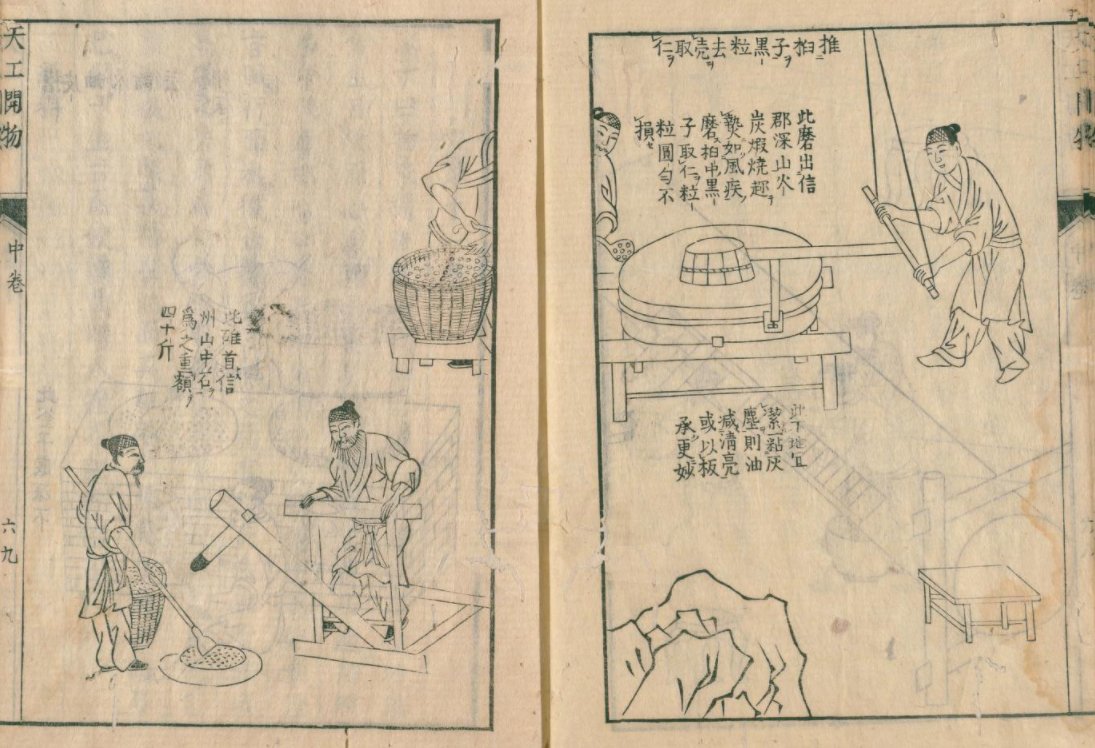 推桕子黒粒去壳取仁
此磨出信
郡深山火
炭煆燒趂
熱如風疾
磨桕中黒
子取仁粒
粒圓勻不
損
此下地宜
潔一點灰
塵則油
减清亮
或以板
承更妙
此碓首信
州山中石
爲之重額
四十斤
天工開物
中卷
六九